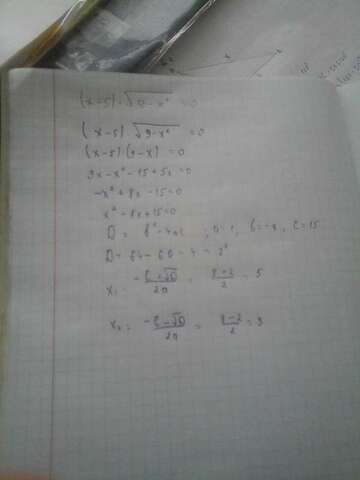 (x-5)·√9-x² =0
(x-5)·√9-x² =0
(x-5)·(3-x)=0
3x-x²-15+5x=0
-x²+8x-15=0
x²-8x+15=0
D= b²-4ac ; a=1, b=-8, c=15
D=64-60=4=2²
x₁= -b+√D/2a = 8+2/2 = 5
x₂= -b-√D/2a = 8-2/2 = 3